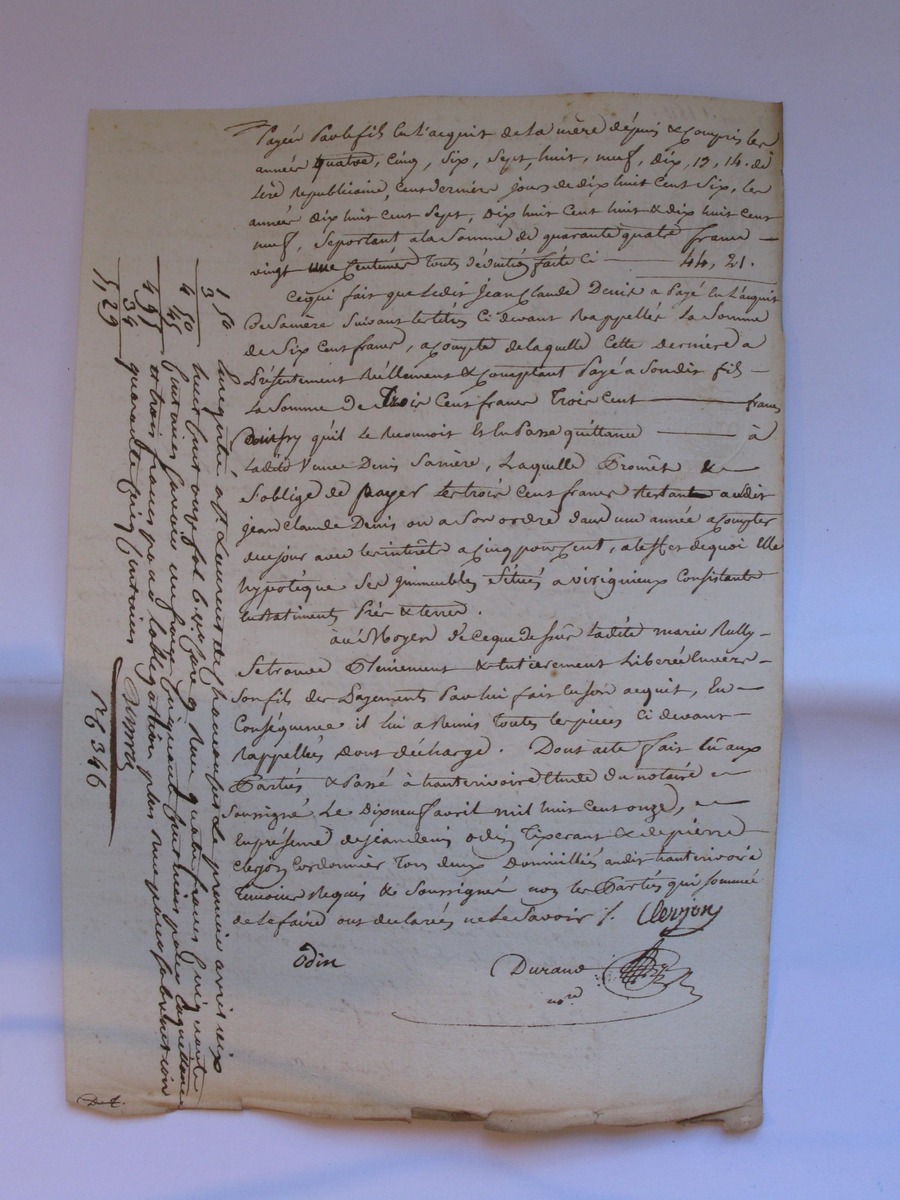 Payés Par le fils En l'acquit de la mère depuis & Compris les
année quatre, Cinq, Six, Sept, huit, neuf, dix, 13, 14. de
l'ère Republicaine, Cent derniers jours de dix huit Cent Six, les
année dix huit Cent Sept, Dix huit Cent huit & dix huit Cent
neuf, Se portant a la Somme de quarante quatre francs
vingt une Centimes toute déduction faite Ci 44, 21.
Ce qui fait que Ledit Jean Claude Denis a Payé En L'acquit
De Sa mère Suivant les titres Ci devant Rappellés La Somme
de Six Cent francs, a Compte de laquelle Cette Dernière a
Présentement Réellement & Comptant Payé a Son dit fils
La Somme De Trois Cent francs Trois Cent francs
qu'il Le Reconnoit Et En Passe quittance à
Ladite Veuve Denis Sa mère, Laquelle Promet &
S'oblige de payer Les trois Cent francs Restant audit
Jean Claude Denis ou a Son ordre dans une année a Compter
du jour avec les intérêts a Cinq pour Cent, a l'effet de quoi Elle
hypotèque Ses immeubles Situés a virigneux Consistants
En Batiments Prés & terres.
au Moyen de Ce que dessus Ladite marie Rully
Se trouve Pleinement & Entierement Liberée Envers
Son fils des Payements Par lui fait En Son acquit, En
Conséquence il lui a Remis Toutes les pieces Ci devant
Rappellés Dont décharge. Dont acte Fait Lû aux
Parties & Passé à hauterivoire Etude du notaire
Soussigné Le Dix neuf avril mil huit Cent onze,
En présence de jean denis odin Tixerant & de pierre
Clerjon Cordonnier Tous deux Domiciliés audit hauterivoire
Témoins Requis & Soussignés non les Parties qui Sommé
de Le faire ont declarés ne Le Savoir ./. Clerjon
Odin
Durand
nore
1 50 Enregistré à St Laurent de Chamousset Le premier avril
3 huit Cent onze fol 64 vo Case 9 Reçu quatre francs Cinquante
4 50
45 Centimes pour La quittance
4 95 et trois francs pour L'obligation plus
34
5, 29 quarante Cinq Centimes Durand
76 346